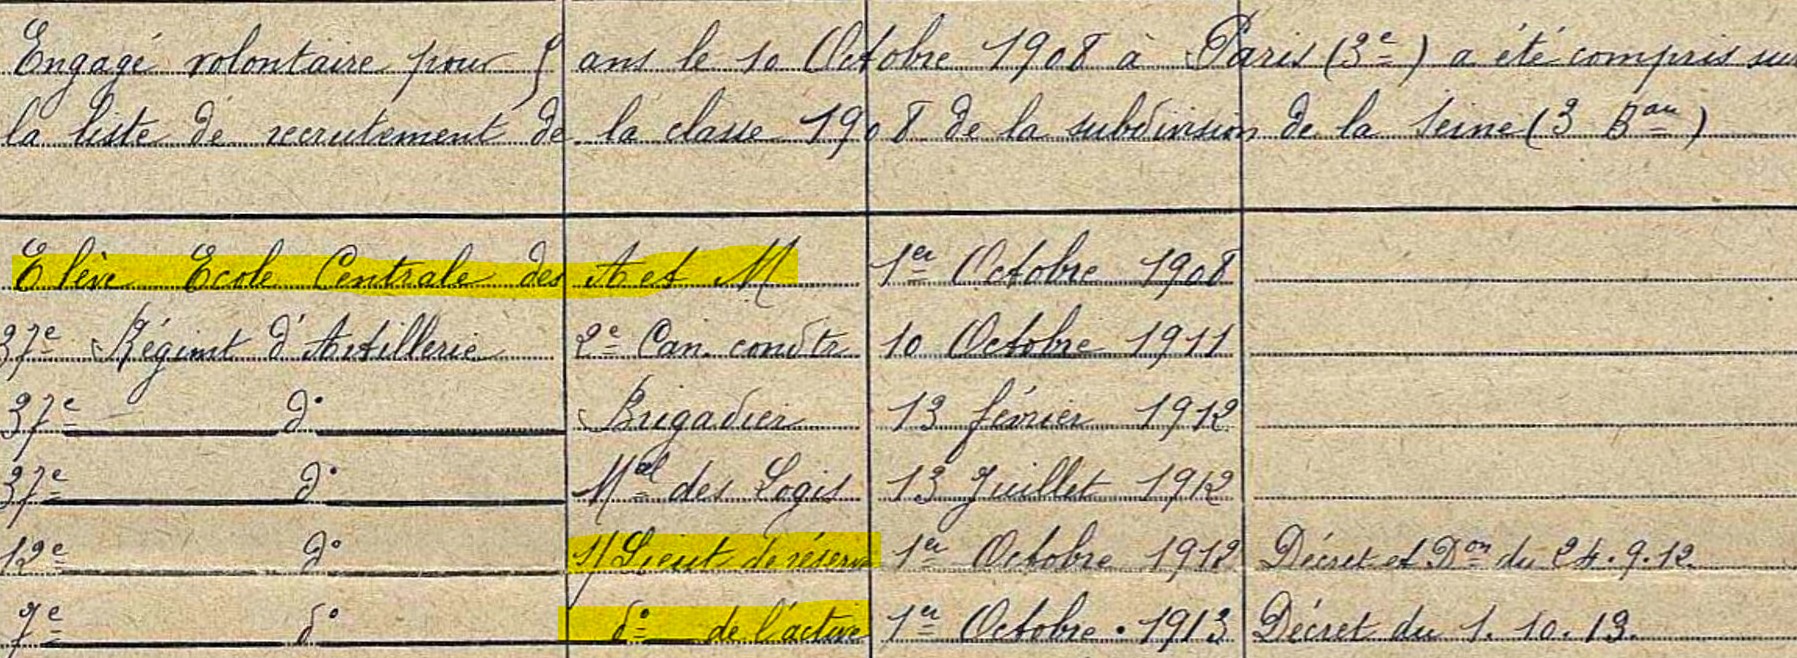 Engagé volontaire pour 5 ans le 10 Octobre 1908 à Paris (3e) a été compris sur
la liste de recrutement de la classe 1908 de la subdivision de la Seine (3 Bau)
Elève Ecole Centrale des A et M 1er Octobre 1908
37e Régimt d'Artillerie 2e Can. condtr 10 Octobre 1911
37e do Brigadier 13 février 1912
37e do Mal des Logis 13 Juillet 1912
12e do S/Lieut de réserve 1er Octobre 1912 Décret et Don du 24.9.12.
7e do do de l'active 1er Octobre 1913 Décret du 1.10.13.